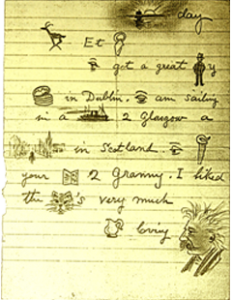 day
Et
got a great y
in Dublin. am sailing
in a 2 Glasgow a
in Scotland.
your 2 Granny. I liked
the 's very much
loving